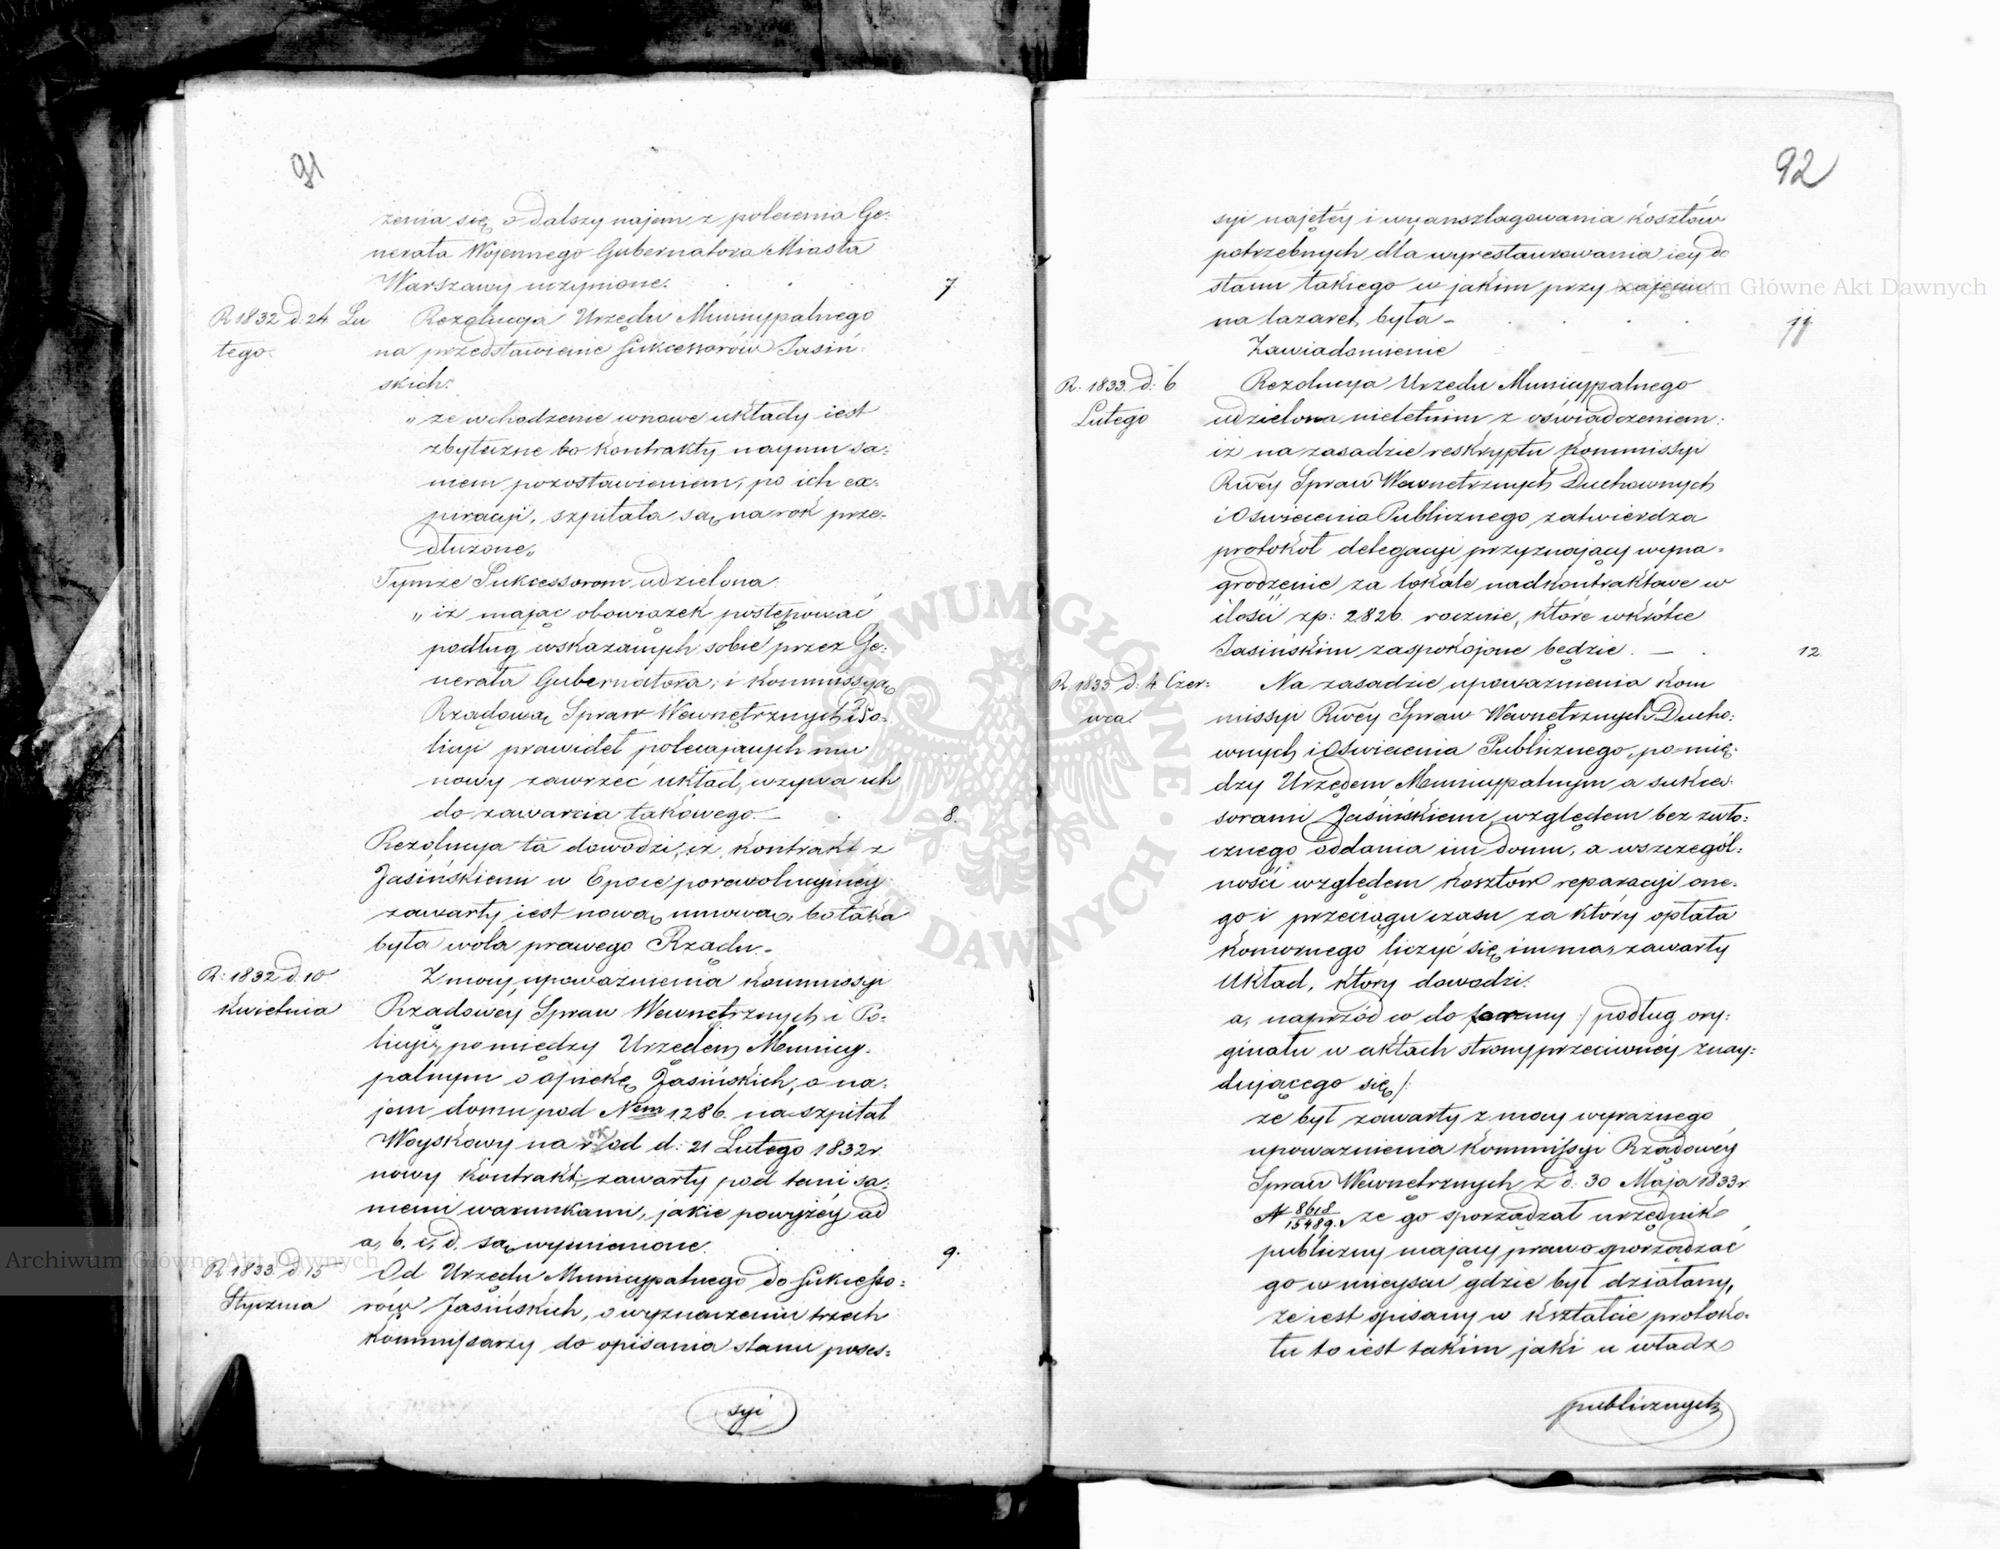 91
żenia się o dalszy najem z polecenia Ge-
nerała Wojennego Gubernatora Miasta
Warszawy uczynione. 7
R 1832 d. 24 Lu
tego.
Rezolucya Urzędu Municypalnego
na przedstawienie Sukcessorów Jasiń-
skich:
„że wchodzenie w nowe układy iest
zbyteczne bo kontrakty naymu sa-
mem pozostawieniem, po ich ex-
piracyi, szpitala są na rok prze-
dłużone„
Tymże Sukcessorom udzielona
„iż mając obowiązek postępować
podług wskazanych sobie przez Ge-
nerała Gubernatora, i Kommissyą
Rządową Spraw Wewnętrznych i Po-
licyi prawideł polecających mu
nowy zawrzeć układ, wzywa ich
do zawarcia takowego.— 8.
Rezolucya ta dowodzi, iż kontrakt z
Jasińskiemi w Epoce porewolucyjnéy
zawarty iest nową umową, bo taka
była wola prawego Rządu.-
R: 1832 d. 10
Kwietnia
Z mocy upoważnienia Kommissyi
Rządowéy Spraw Wewnętrznych i Po-
licyi, pomiędzy Urzędem Municy-
palnym a opieką Jasińskich, o na-
jem domu pod Nem 1286. na szpital
Woyskowy na rok od d: 21 Lutego 1832 r.
nowy kontrakt, zawarty pod temi sa-
memi warunkami, jakie powyżéy ad
a, b, c, d, są wymienione. 9.
R 1833 d 15
Stycznia
Od Urzędu Municypalnego do Sukcesso-
rów Jasińskich, o wyznaczeniu trzech
Kommissarzy do opisania stanu posses-
syi
92
syi najętéy i wyanszlagowania kosztów
potrzebnych dla wyrestaurowania iéy do
stanu takiego w jakim przy zajęciu
na lazaret była - 11
Zawiadomienie
R: 1833. d: 6
Lutego
Rezolucya Urzędu Municypalnego
udzielona nieletnim z oświadczeniem:
iż na zasadzie reskryptu Kommissyi
Rwéy Spraw Wewnętrznych Duchownych
i Oświecenia Publicznego zatwierdza
protokół delegacyi przyznający wyna-
grodzenie za lokale nadkontraktowe w
ilości zp: 2826. rocznie, które wkrótce
Jasińskim zaspokojone będzie. — 12
R. 1833 d: 4. Czer-
wca
Na zasadzie upoważnienia Kom
missyi Rwéy Spraw Wewnętrznych Ducho-
wnych i Oświecenia Publicznego, pomię-
dzy Urzędem Municypalnym a sukces-
sorami Jasińskiemi, względem bezzwło-
cznego oddania im domu, a wszczegól-
ności względem kosztów reparacyi one-
go i przeciągu czasu za który opłata
komornego liczyć się im ma, zawarty
Układ, który dowodzi.
a, naprzód co do formy :/ podług ory-
ginału w aktach strony przeciwnéy znay-
dującego się /:
że był zawarty z mocy wyraźnego
upoważnienia Kommissyi Rządowéy
Spraw Wewnętrznych z d: 30 Maja 1833 r.
N 8618/15489. że go sporządzał urzędnik
publiczny mający prawo sporządzać
go w mieyscu gdzie był działany,
że iest spisany w kształcie protokó-
łu to iest takim jaki u władz
publicznych
ARCHIWUM GŁÓWNE AKT DAWNYCH
Archiwum Główne Akt Dawnych
Archiwum Główne Akt Dawnych